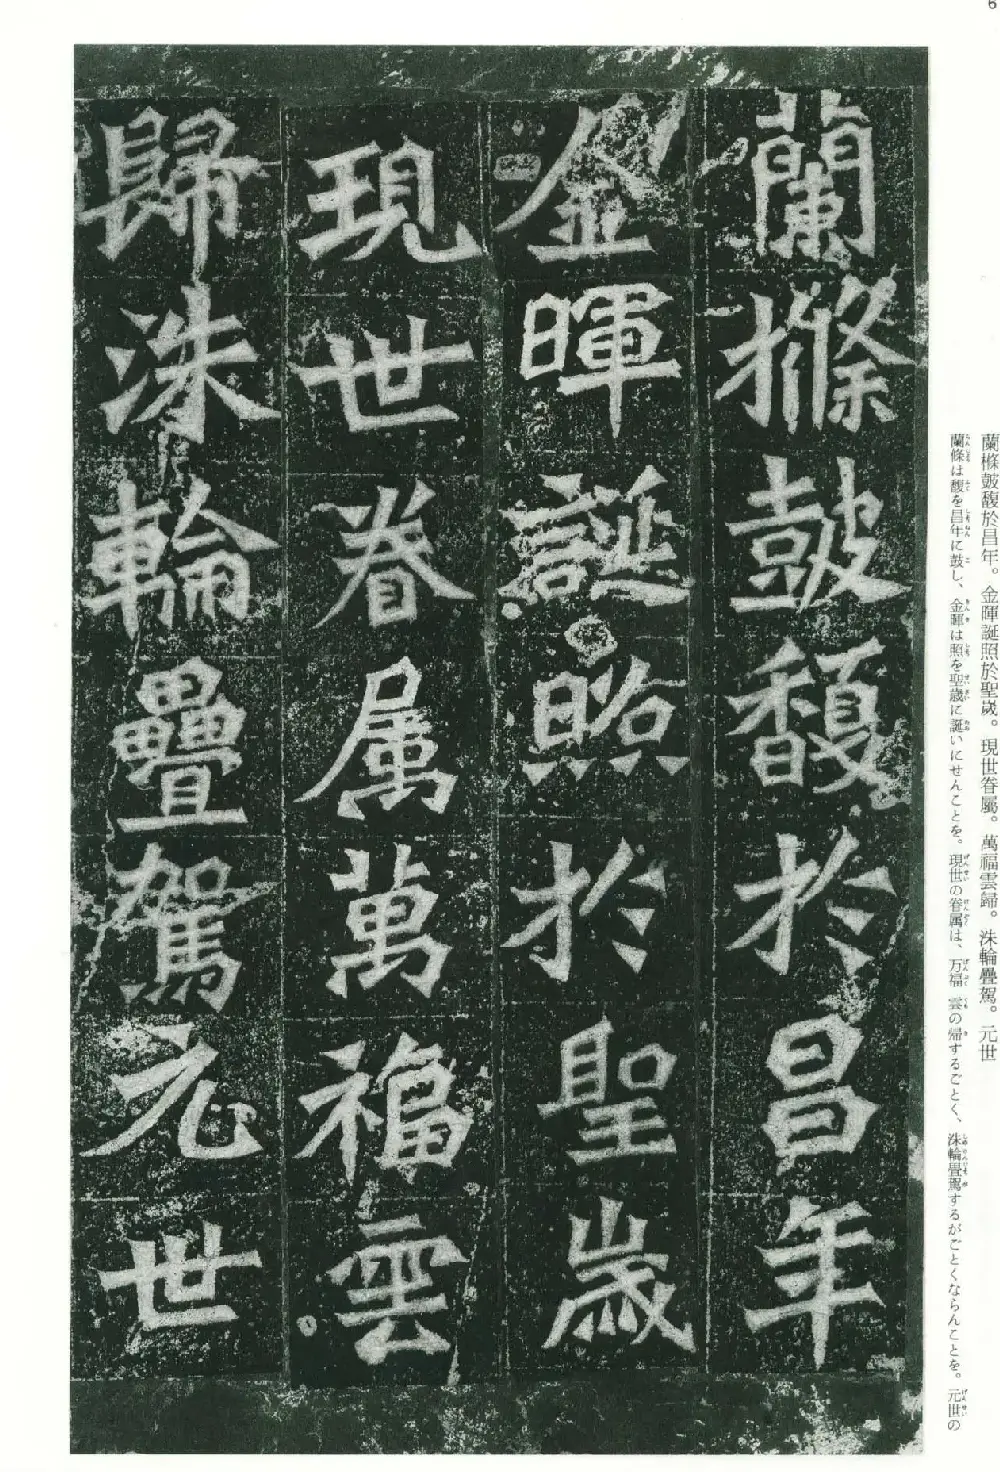 6
蘭樤皷馥於昌年。金暉誕照於聖歲。現世眷屬。萬福雲歸。洙輪疊駕。元世
蘭條は馥を昌年に鼓し、金暉は照を聖歳に誕いにせんことを。現世の眷属は、万福雲の帰するごとく、洙輪畳駕するがごとくならんことを。元世の
蘭樤皷馥於昌年
金暉誕照於聖歲
現世眷属萬福雲
歸洙輪疊駕元世